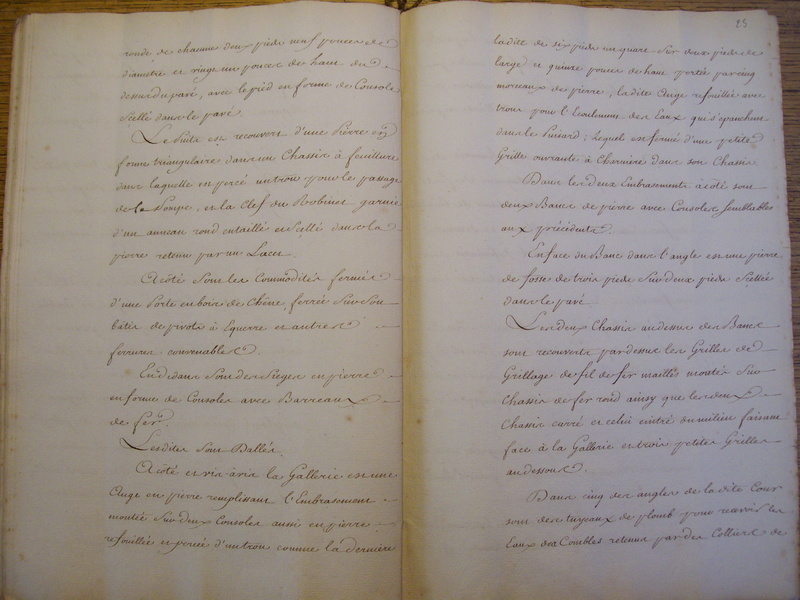 ronde de chacune deux pieds neuf pouces de
diametre et vingt un pouces de haut du
dessus du pavé, avec le pied en forme de Console
scellé dans le pavé.
Le Puits est recouvert d'une Pierre en
forme triangulaire dans un Chassis à feuillure
dans laquelle en percé un trou pour le passage
de la Pompe, et la Clef du Robinet garnie
d'un anneau rond entaillé et scellé dans la
pierre retenu par un Lacet.
A côté sont les Commodités fermées
d'une Porte en bois de Chêne, ferrée sur son
bâtis de pivots à Equerre et autres
ferrures convenables.
En dedans sont des Sieges en pierre
en forme de Consoles avec Barreaux
de fer.
Lesdites sont Dallées.
A côté et vis-à-vis la Gallerie est une
Auge en pierre remplissant l'Embrasement
montée sur deux Consoles aussi en pierre
refouillée et percée d'un trou comme la derniere
25
ladite de six pieds un quart sur deux pieds de
large et quinze pouces de haut portée par cinq
morceaux de pierre, ladite Auge refouillée avec
trous pour l'Ecoulement des Eaux qui s'epanchent
dans le Puisard; lequel est fermé d'une petite
Grille ouvrante à Charniere dans son Chassis.
Dans les deux Embrasements à côté sont
deux Bancs de pierre avec Consoles semblables
aux précédents.
En face du Banc dans l'angle est une pierre
de fosse de trois pieds sur deux pieds scellée
dans le pavé
Les deux Chassis au dessus des Bancs
sont recouverts par dessus les Grilles de
Grillage de fil de fer maillés montés sur
Chassis de fer rond ainsy que les deux
Chassis carré et celui cintré du milieu faisant
face à la Gallerie et trois petites Grilles
au dessous.
Dans cinq des angles de la dite Cour
sont des tuyaux de plomb pour recevoir les
Eaux des Combles retenus par des Colliers de